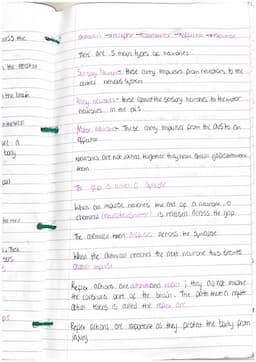 Stimulus → receptor → coordinator → effector → response
There are 3 main types of neurones
Sensory neurones - these carry impulses from receptors to the
central nervous system
Relay neurones - these connect the sensory neurones to the motor
neurones in the CNS
Motor neurones - These carry impulses from the CNS to an
effector
Neurones are not joined together they have a gap between
them
The gap is called a synapse
When an impulse reaches the end of a neurone, a
chemical (neurotransmitter) is released across the gap
The chemical then diffuses across the synapse
When the chemical reaches the next neurone this creates
another impulse
Reflex actions are automatic and rapid; they do not involve
the conscious part of the brain. The path that a reflex
action takes is called the reflex arc
Reflex actions are important as they protect the body from
injury